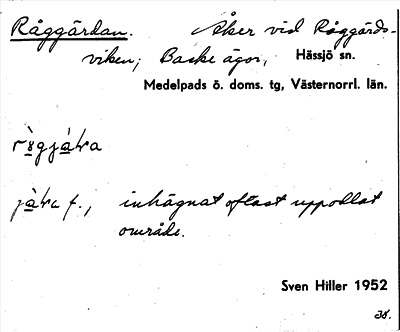 Råggärdan. Åker vid Råggärds-
viken; Baske ägor, Hässjö sn.
Medelpads ö. doms. tg, Västernorrl. län.
f., inhägnat oftast uppodlat
område.
Sven Hiller 1952